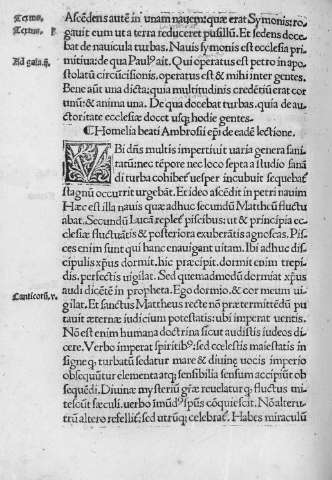 Textus. Ascẽdens autẽ in unam nauem: quæ erat Symonis: ro
Textus. gauit eum ut a terra reduceret pusillũ. Et sedens doce
bat de nauicula turbas. Nauis symonis est ecclesia pri
Ad gala.ij. mitiua: de qua Paulꝰ ait. Qui operatus est petro in apo
stolatũ circũcisionis, operatus est & mihi inter gentes.
Bene aũt una dicta: quia multitudinis credẽtiũ erat cor
unũ: & anima una. De qua docebat turbas. quia de au
ctoritate ecclesiæ docet usq; hodie gentes.
¶ Homelia beati Ambrosii epĩ de eadẽ lectione.
VBi dñs multis impertiuit uaria genera sani
tatũ: nec tẽpore nec loco septa a studio sanã
di turba cohibet uesper incubuit sequebat̃
stagnũ occurrit urgebãt. Et ideo ascẽdit in petri nauim
Hæc est illa nauis quæ adhuc secundũ Matthæũ fluctu
abat. Secundũ Lucã replet̃ piscibus: ut & principia ec
clesiæ fluctuãtis & posteriora exuberãtis agnoscas. Pis
ces enim sunt qui hanc enauigant uitam. Ibi adhuc di
scipulis xp̃us dormit, hic præcipit. dormit enim trepi
dis, perfectis uigilat. Sed quemadmodũ dormiat xp̃us
Canticorũ. v. audi dicẽtẽ in propheta. Ego dormio, & cor meum ui
gilat. Et sanctus Mattheus recte nõ prætermittẽdũ pu
tauit æternæ iudicium potestatis: ubi imperat uentis.
Nõ est enim humana doctrina sicut audistis iudeos di
cere. Verbo imperat spiritibꝰ: sed cœlestis maiestatis in
signe q; turbatũ sedatur mare & diuinę uocis imperio
obsequũtur elementa atq; sensibilia sensum accipiũt ob
sequẽdi. Diuinæ mysteriũ græ reuelatur q; fluctus mi
tescũt sæculi. uerbo ĩmũdꝰ spũs cõquiescit. Nõ alteru
trũ altero refellit̃, sed utrũq; celebrat̃. Habes miraculũ